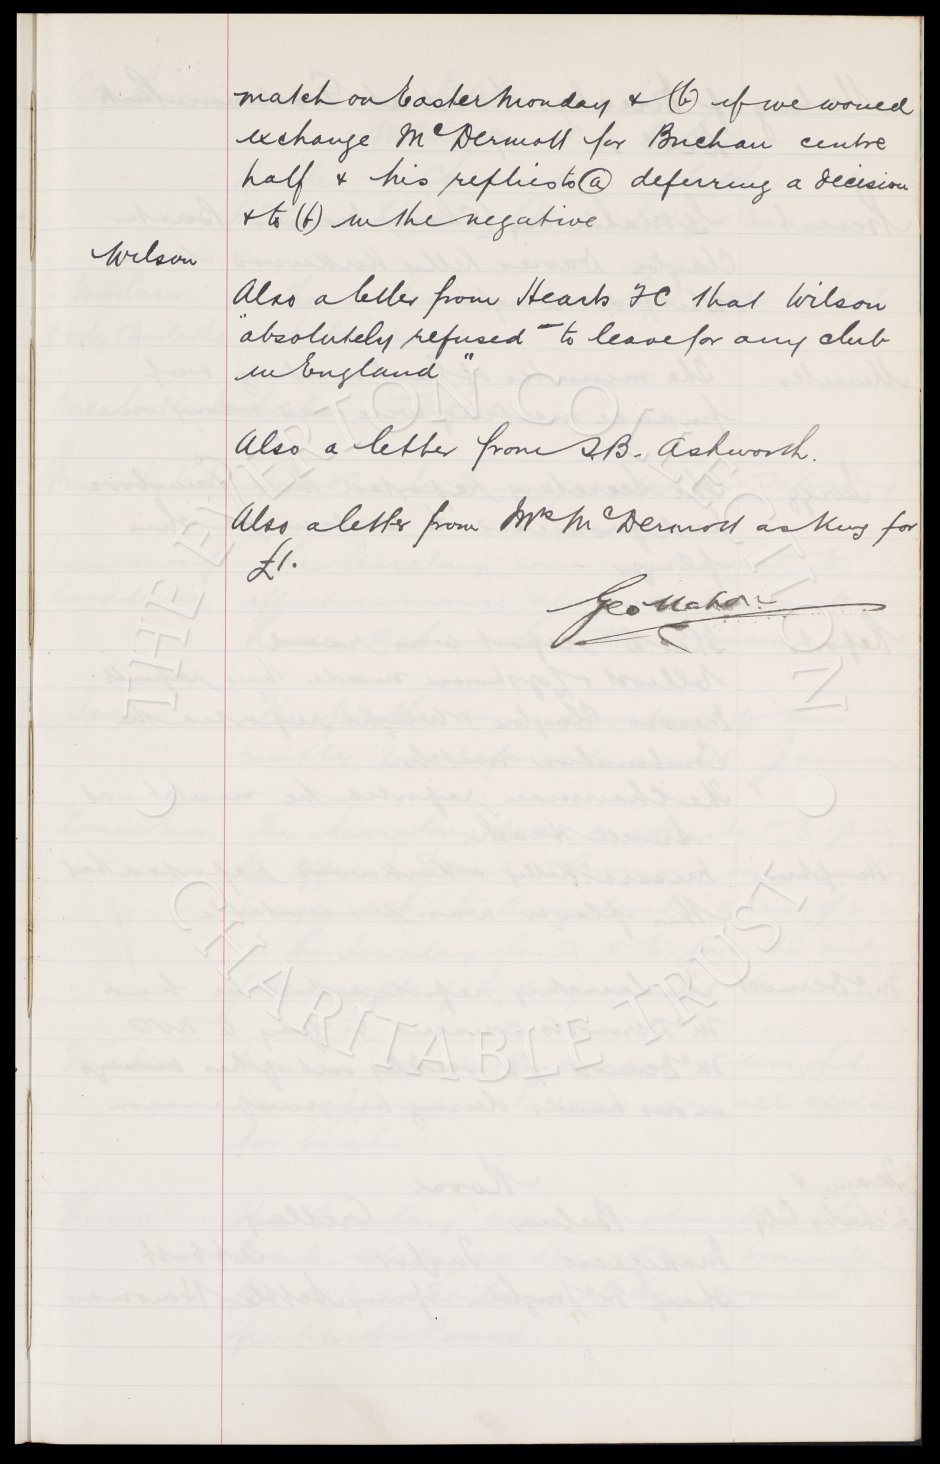 match on Easter Monday & (b) if we would
exchange McDermott for Buchan centre
half & his replies to (a) deferring a decision
& to (b) in the negative
Wilson
Also a letter from Hearts FC that Wilson
"absolutely refused to leave for any club
in England"
Also a letter from S.B. Ashworth.
Also a letter from Mrs McDermott asking for
£1.
Geo Mahon
THE EVERTON COLLECTION
CHARITABLE TRUST